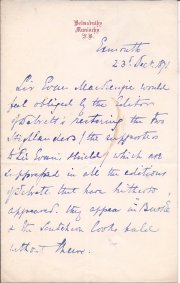 Belmaduthy
Munlochy
N.B.
Exmouth
23d Dec. 1891
Sir Evan MacKenzie would
feel obliged by the Editor
of Debrett's restoring the two
Highlanders (the supporters
to Sir Evan's shield) which are
suppressed in all the editions
of Debrett that have hitherto
appeared. they appear in Burke
& the Scutcheon looks bald
without them.